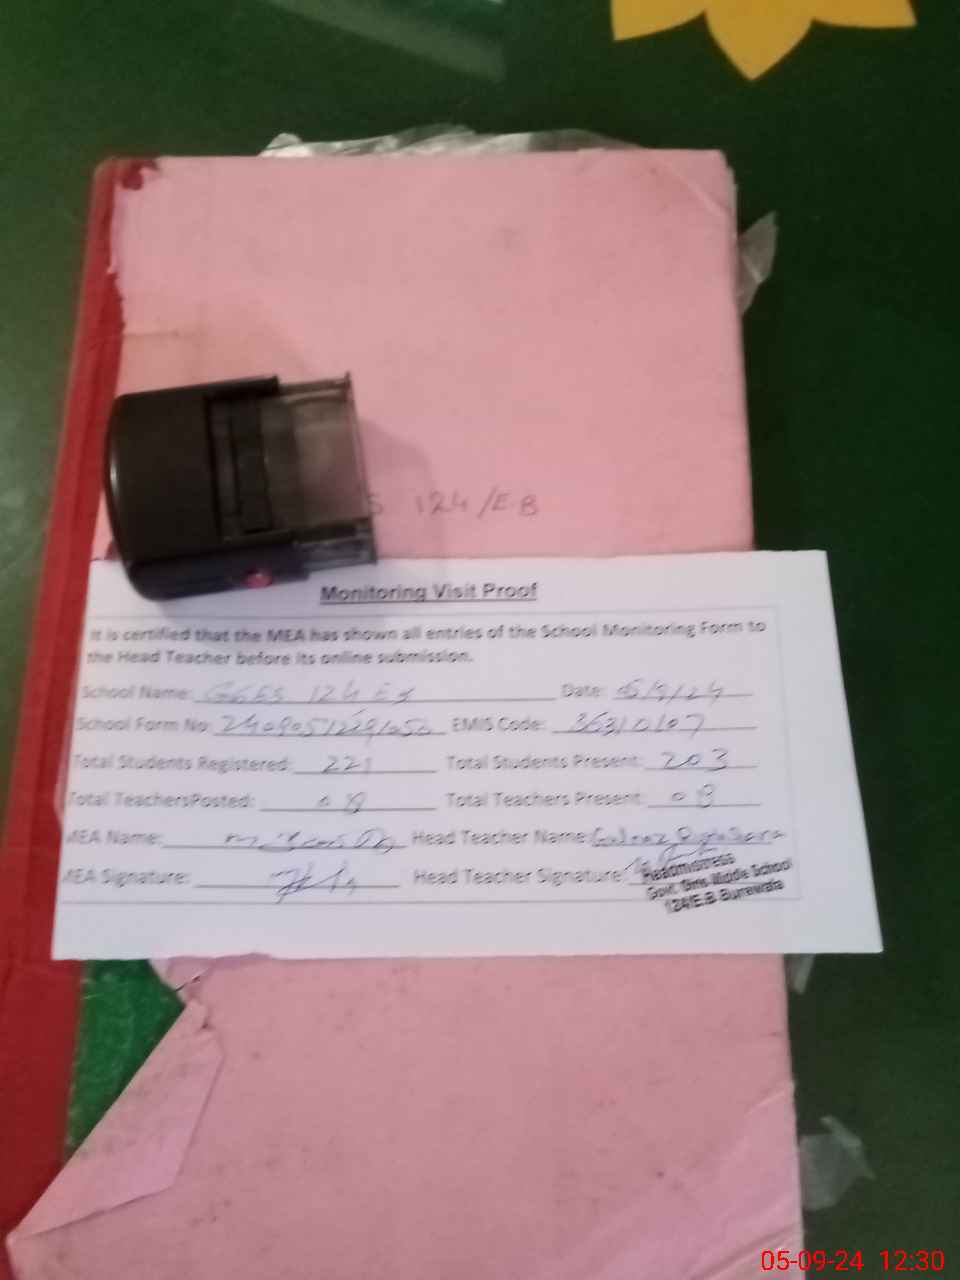 S 124/E.B
Monitoring Visit Proof
It is certified that the MEA has shown all entries of the School Monitoring Form to
the Head Teacher before its online submission.
School Name: GGES 124 EB Date: 5/9/24
School Form No: EMIS Code: 36310107
Total Students Registered: 221 Total Students Present: 203
Total TeachersPosted: 08 Total Teachers Present: 08
MEA Name: Head Teacher Name: Gulnaz
MEA Signature: Head Teacher Signature:
Headmistress
Govt. Girls Middle School
124/E.B Burewala
05-09-24 12:30